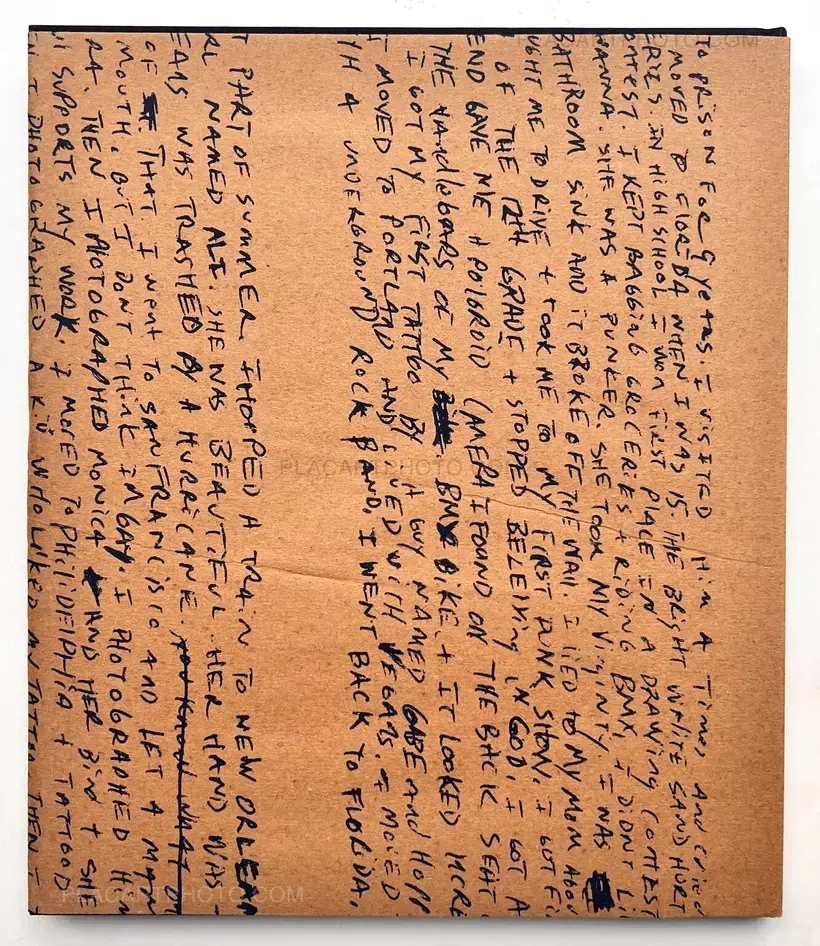 TO PRISON FOR 9 YEARS. I VISITED HIM A TIMES AND CRIED
MOVED TO FLORIDA WHEN I WAS 15. THE BRIGHT WHITE SAND HURT
IN HIGH SCHOOL I WON FIRST PLACE IN A DRAWING CONTEST
ONTEST. I KEPT BAGGING GROCERIES + RIDING BMX. I DIDNT LI
HANNA. SHE WAS A PUNKER. SHE TOOK MY VIRGINTY. I WAS
BATHROOM SINK AND IT BROKE OFF THE WALL. I LIED TO MY MOM ABOU
UGHT ME TO DRIVE + TOOK ME TO MY FIRST PUNK SHOW. I GOT FI
OF THE 12th GRADE + STOPPED BELEIVING IN GOD. I GOT A
END GAVE ME A POLAROID CAMERA I FOUND ON THE BACK SEAT
THE HANDLEBARS OF MY BMX BIKE. + IT LOOKED MORE
I GOT MY FIRST TATTOO BY A GUY NAMED GABE AND HOPP
I MOVED TO PORTLAND AND LIVED WITH VEGANS. I MOVED
TH A UNDERGROUND ROCK BAND, I WENT BACK TO FLORIDA,
T PART OF SUMMER. I HOPPED A TRAIN TO NEW ORLEAN
RL NAMED ALI. SHE WAS BEAUTIFUL. HER HAND WAS
EANS WAS TRASHED BY A HURRICANE. YOU KNOW WHAT
OF THAT. I WENT TO SAN FRANCISCO AND LET A MAN
MOUTH. BUT I DONT THINK IM GAY. I PHOTOGRAPHED HIM
RA. THEN I PHOTOGRAPHED MONICA AND HER BIRD + SHE
SUPPORTS MY WORK. I MOVED TO PHILIDELPHIA + TATTOOD
I PHOTOGRAPHED A KID WHO LIKED MY TATTOO THEN I
PLACARTPHOTO.COM
PLACARTPHOTO
PLACARTPHOTO.COM